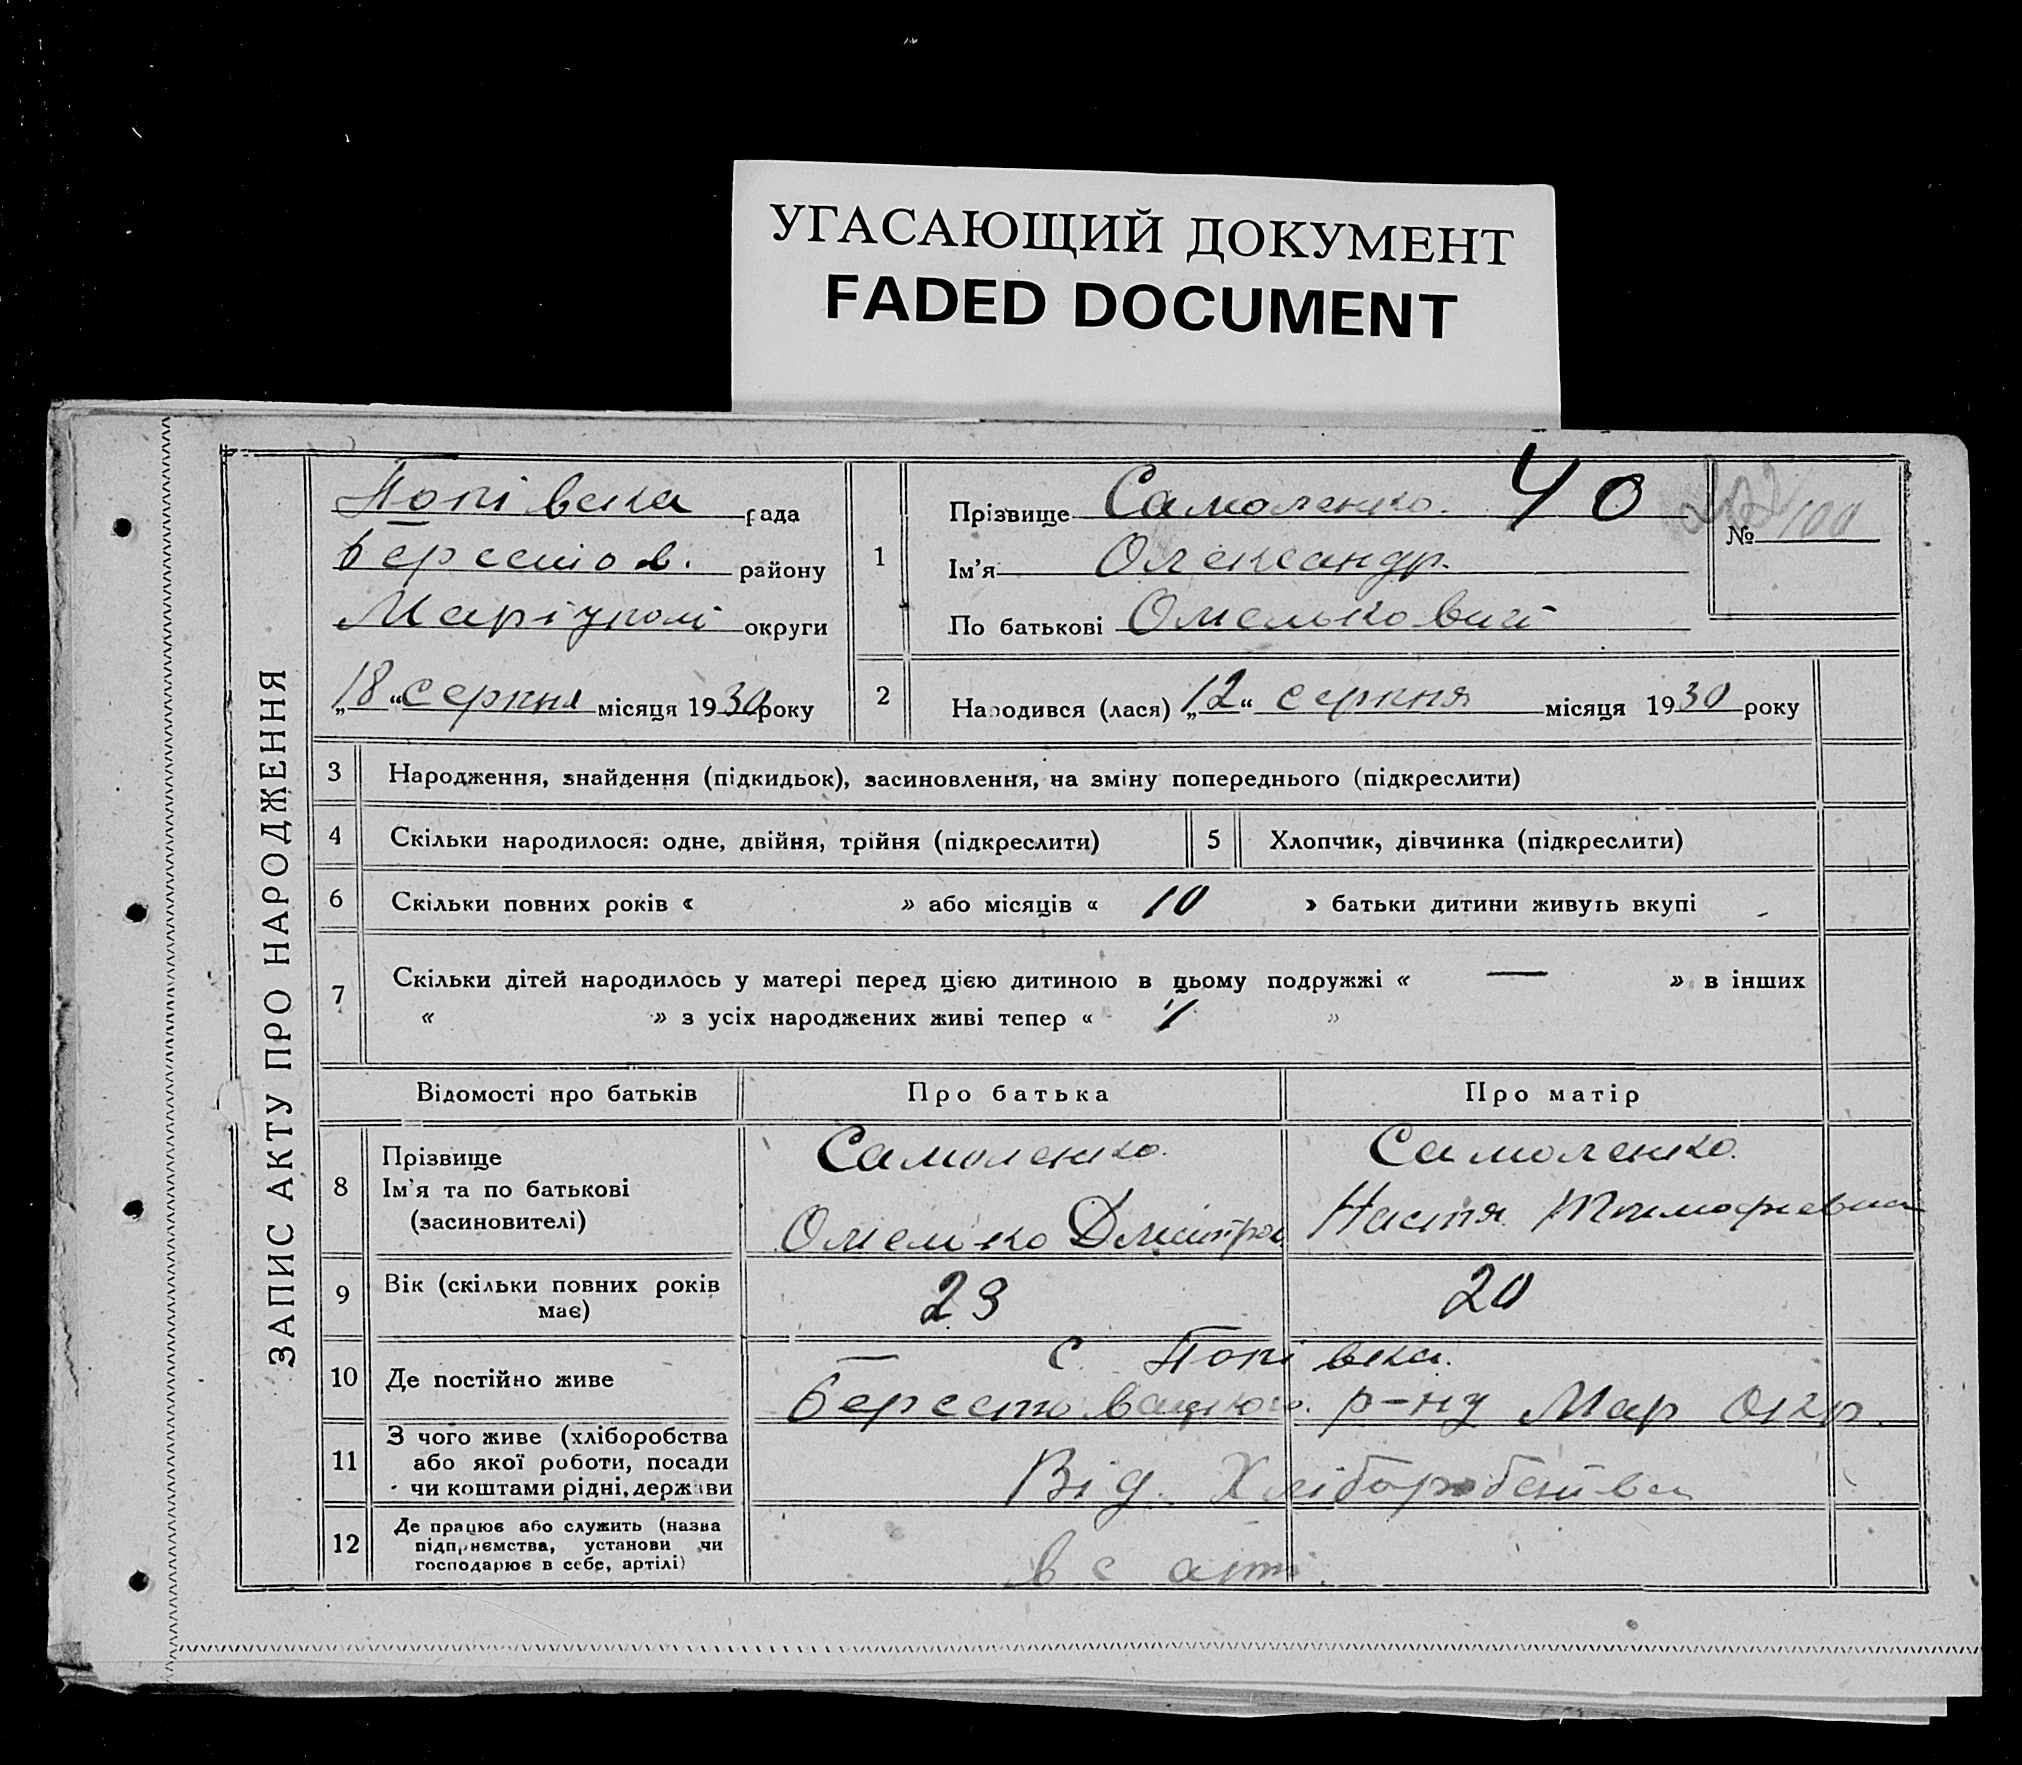 УГАСАЮЩИЙ ДОКУМЕНТ
FADED DOCUMENT
ЗАПИС АКТУ ПРО НАРОДЖЕННЯ
Попівска рада
Берестов. району
Маріупол округи
„18“ серпня місяця 1930 року
1
Прізвище Самоленко. 40
Ім’я Олександр.
По батькові Омелькович
№ 100
2
Народився (лася) „12“ серпня місяця 1930 року
3 Народження, знайдення (підкидьок), засиновлення, на зміну попереднього (підкреслити)
4 Скільки народилося: одне, двійня, трійня (підкреслити)
5 Хлопчик, дівчинка (підкреслити)
6 Скільки повних років « » або місяців « 10 » батьки дитини живуть вкупі
7 Скільки дітей народилось у матері перед цією дитиною в цьому подружжі « — » в інших
« » з усіх народжених живі тепер « 1 »
Відомості про батьків Про батька Про матір
8 Прізвище
Ім’я та по батькові
(засиновителі)
Самоленко. Самоленко.
Омелько Дмитров Настя Тимофиевна
9 Вік (скільки повних років
має)
23 20
10 Де постійно живе
с Попівка.
Берестовацкого р-ну Мар Окр.
11 З чого живе (хліборобства
або якої роботи, посади
чи коштами рідні, держави
Від. Хліборобства
12 Де працює або служить (назва
підприємства, установи чи
господарює в себе, артілі)
в с